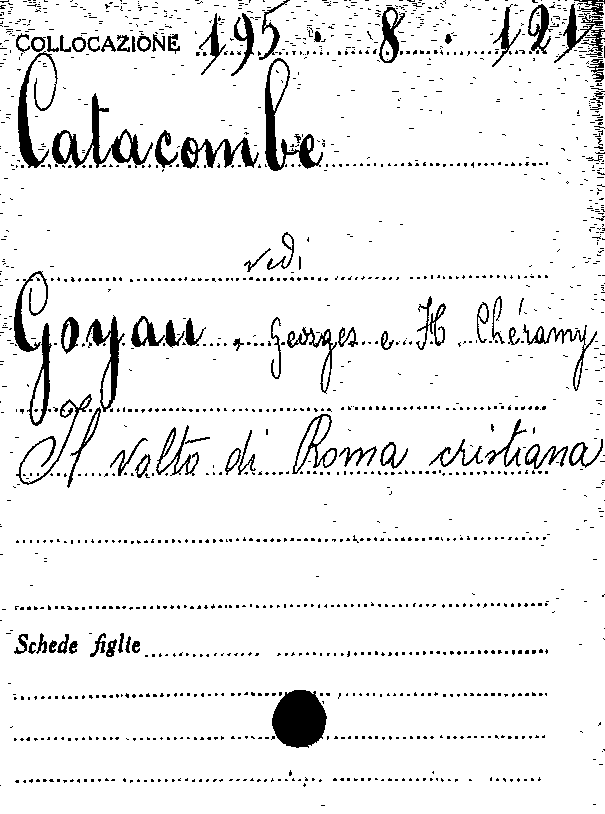 COLLOCAZIONE 195 · 8 · 121
Catacombe
vedi
Goyau, Georges e H Chéramy
Il volto di Roma cristiana
Schede figlie